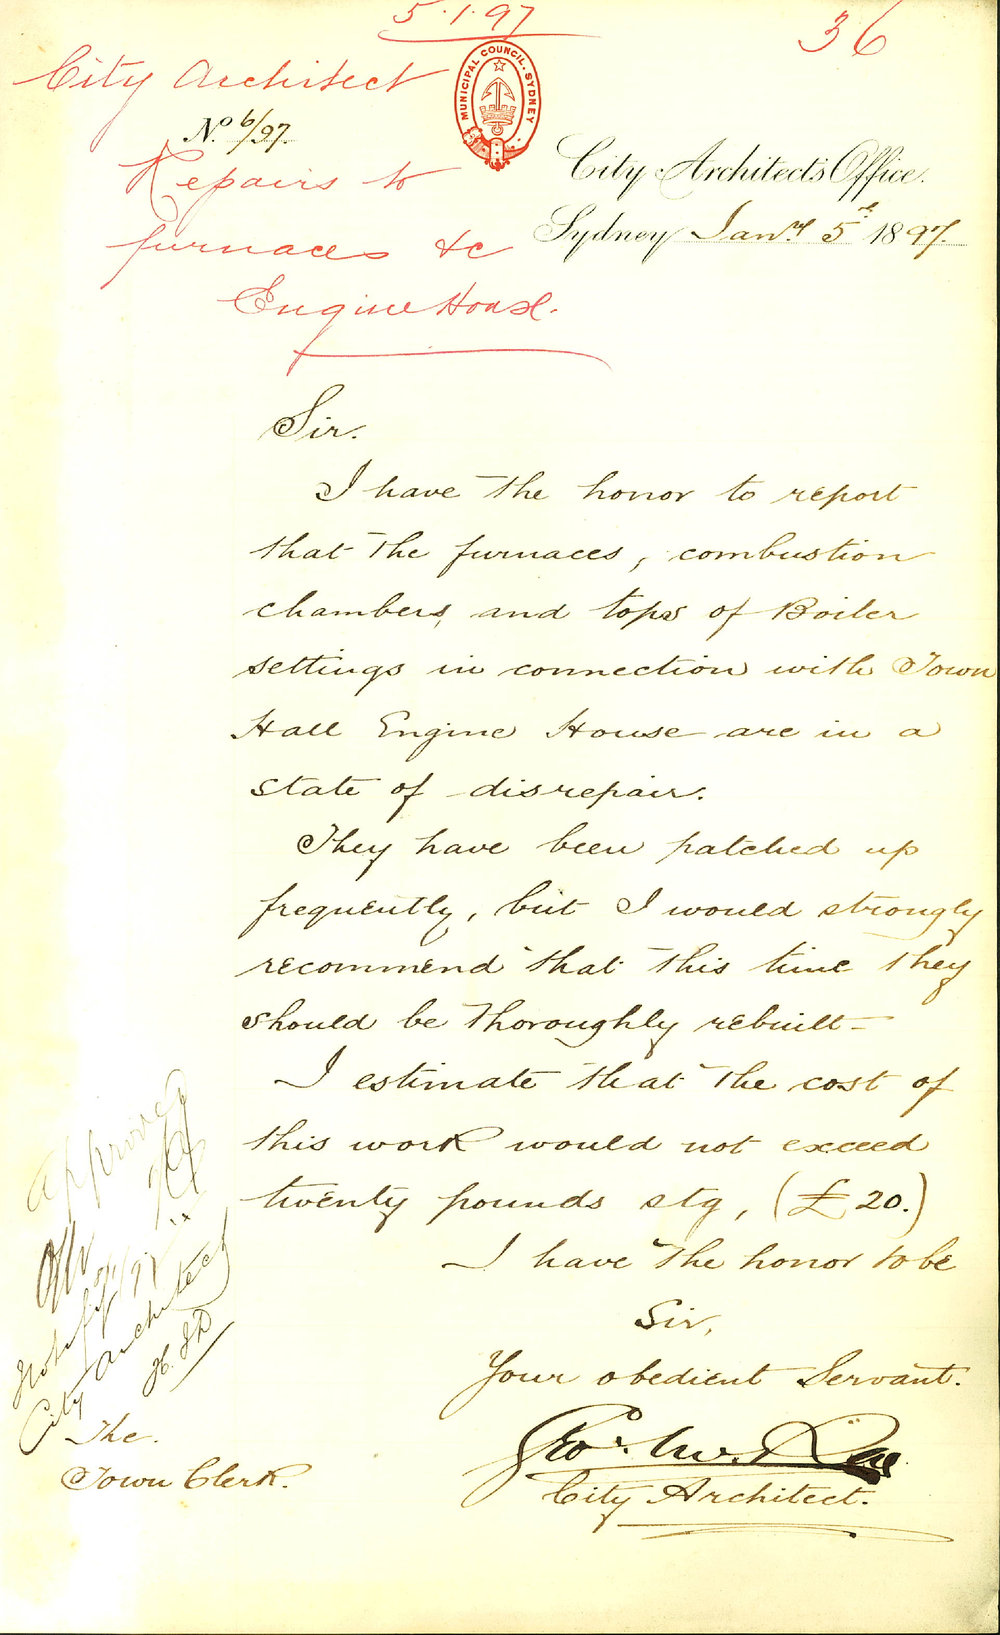 5.1.97
36
City Architect
MUNICIPAL COUNCIL. SYDNEY
No. 6/97.
City Architect's Office.
Repairs to
Sydney Jany 5th 1897.
furnaces &c
Engine House.
Sir.
I have the honor to report
that the furnaces, combustion
chambers, and tops of Boiler
settings in connection with Town
Hall Engine House are in a
state of disrepair.
They have been patched up
frequently, but I would strongly
recommend that this time they
should be thoroughly rebuilt-
I estimate that the cost of
this work would not exceed
twenty pounds stg, (£20.)
I have the honor to be
Sir,
Your obedient Servant.
Geo. McRae
City Architect.
approved
City Architect
The.
Town Clerk.